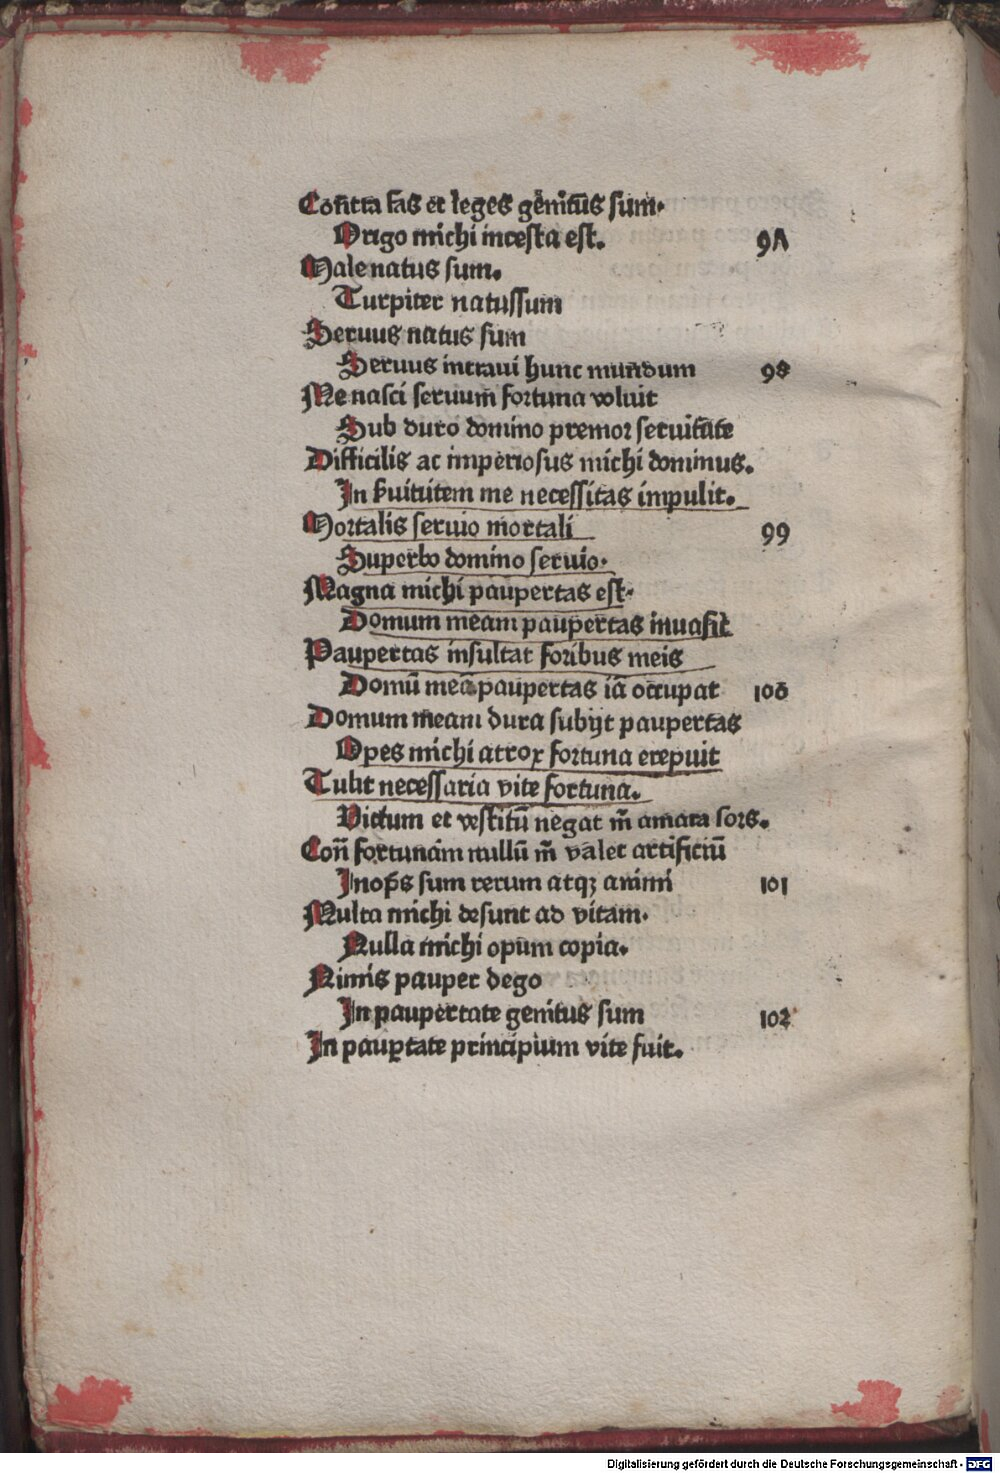 Cōntra fas et leges genitus sum.
Origo michi incesta est. 97
Male natus sum.
Turpiter natussum
Seruus natus sum
Seruus intraui hunc mundum 98
Me nasci seruum fortuna voluit
Sub duro domino premor seruitute
Difficilis ac imperiosus michi dominus.
In ẜuitutem me necessitas impulit.
Mortalis seruio mortali 99
Superbo domino seruio.
Magna michi paupertas est.
Domum meam paupertas inuasit
Paupertas insultat foribus meis
Domū meā paupertas iā occupat 100
Domum meam dura subijt paupertas
Opes michi atrox fortuna erepuit
Tulit necessaria vite fortuna.
Victum et vestitū negat m̄ amara sors.
Con̄ fortunam nullū m̄ valet artificiū
Inop̄s sum rerum atqꝫ animi 101
Multa michi desunt ad vitam.
Nulla michi opum copia.
Nimis pauper dego
In paupertate genitus sum 102
In pauꝑtate principium vite fuit.
Digitalisierung gefördert durch die Deutsche Forschungsgemeinschaft - DFG